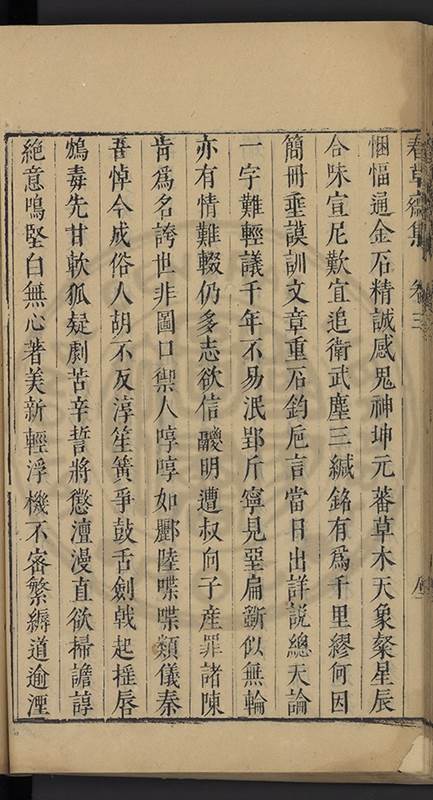 春草齋集 卷三
悃愊通金石精誠感鬼神坤元蕃草木天象粲星辰
合味宣尼歎宜追衛武塵三緘銘有爲千里繆何因
簡冊垂謨訓文章重石鈞巵言當日出詳説總天論
一字難輕議千年不易泯郢斤寧見堊扁斵似無輪
亦有情難輟仍多志欲信鬷明遭叔向子產罪諸陳
肯爲名誇世非圖口禦人啍啍如酈陸喋喋類儀秦
吾悼今成俗人胡不反淳笙簧爭鼓舌劍戟起揺唇
鴆毒先甘軟狐疑劇苦辛誓將懲澶漫直欲掃譫諄
絶意鳴堅白無心著美新輕浮機不密繁縟道逾湮